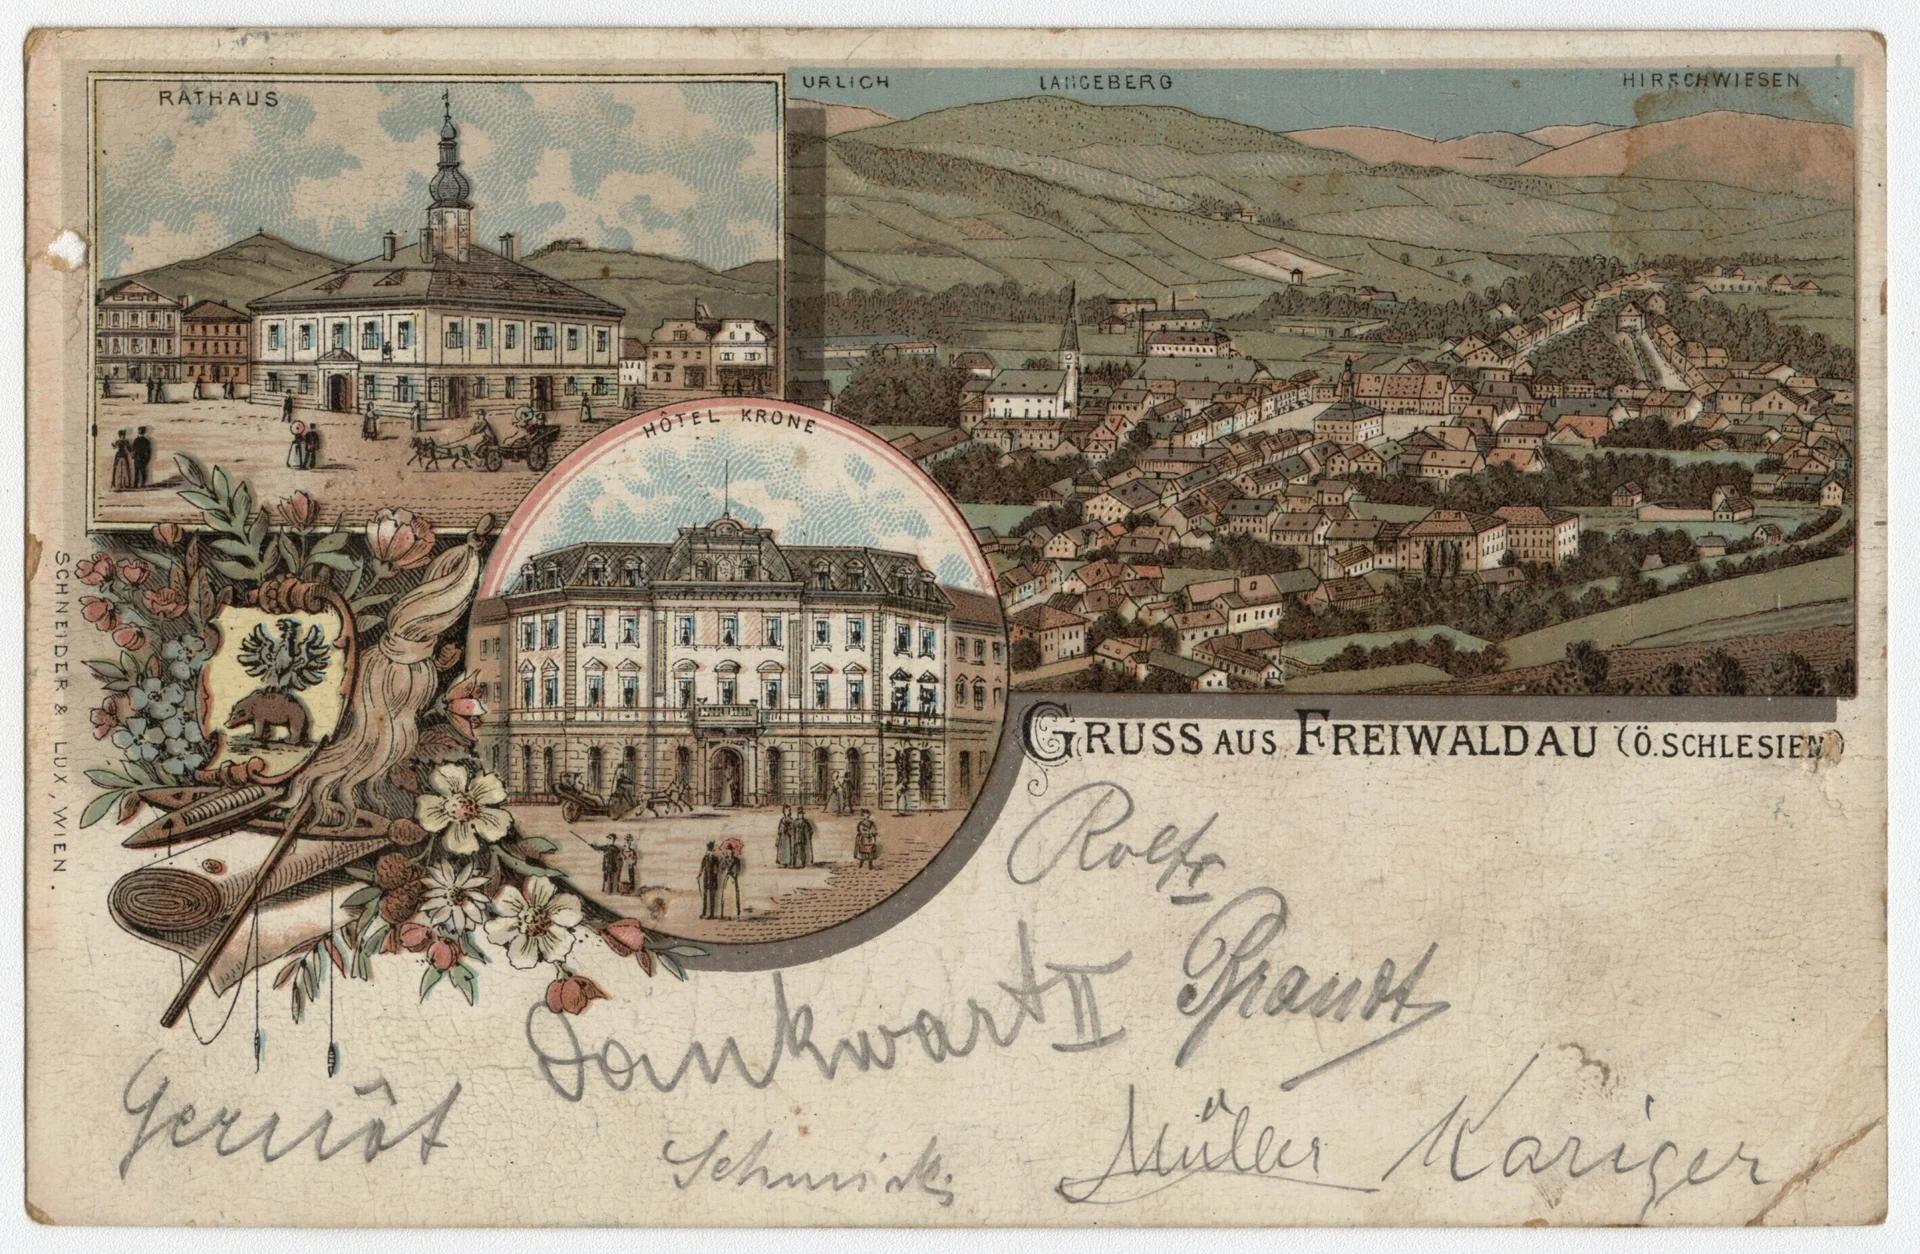 RATHAUS
URLICH LANGEBERG HIRSCHWIESEN
HÔTEL KRONE
SCHNEIDER & LUX, WIEN.
GRUSS AUS FREIWALDAU (Ö.SCHLESIEN)
Dankwart II Brandt
Gernôt
Müller Kariger